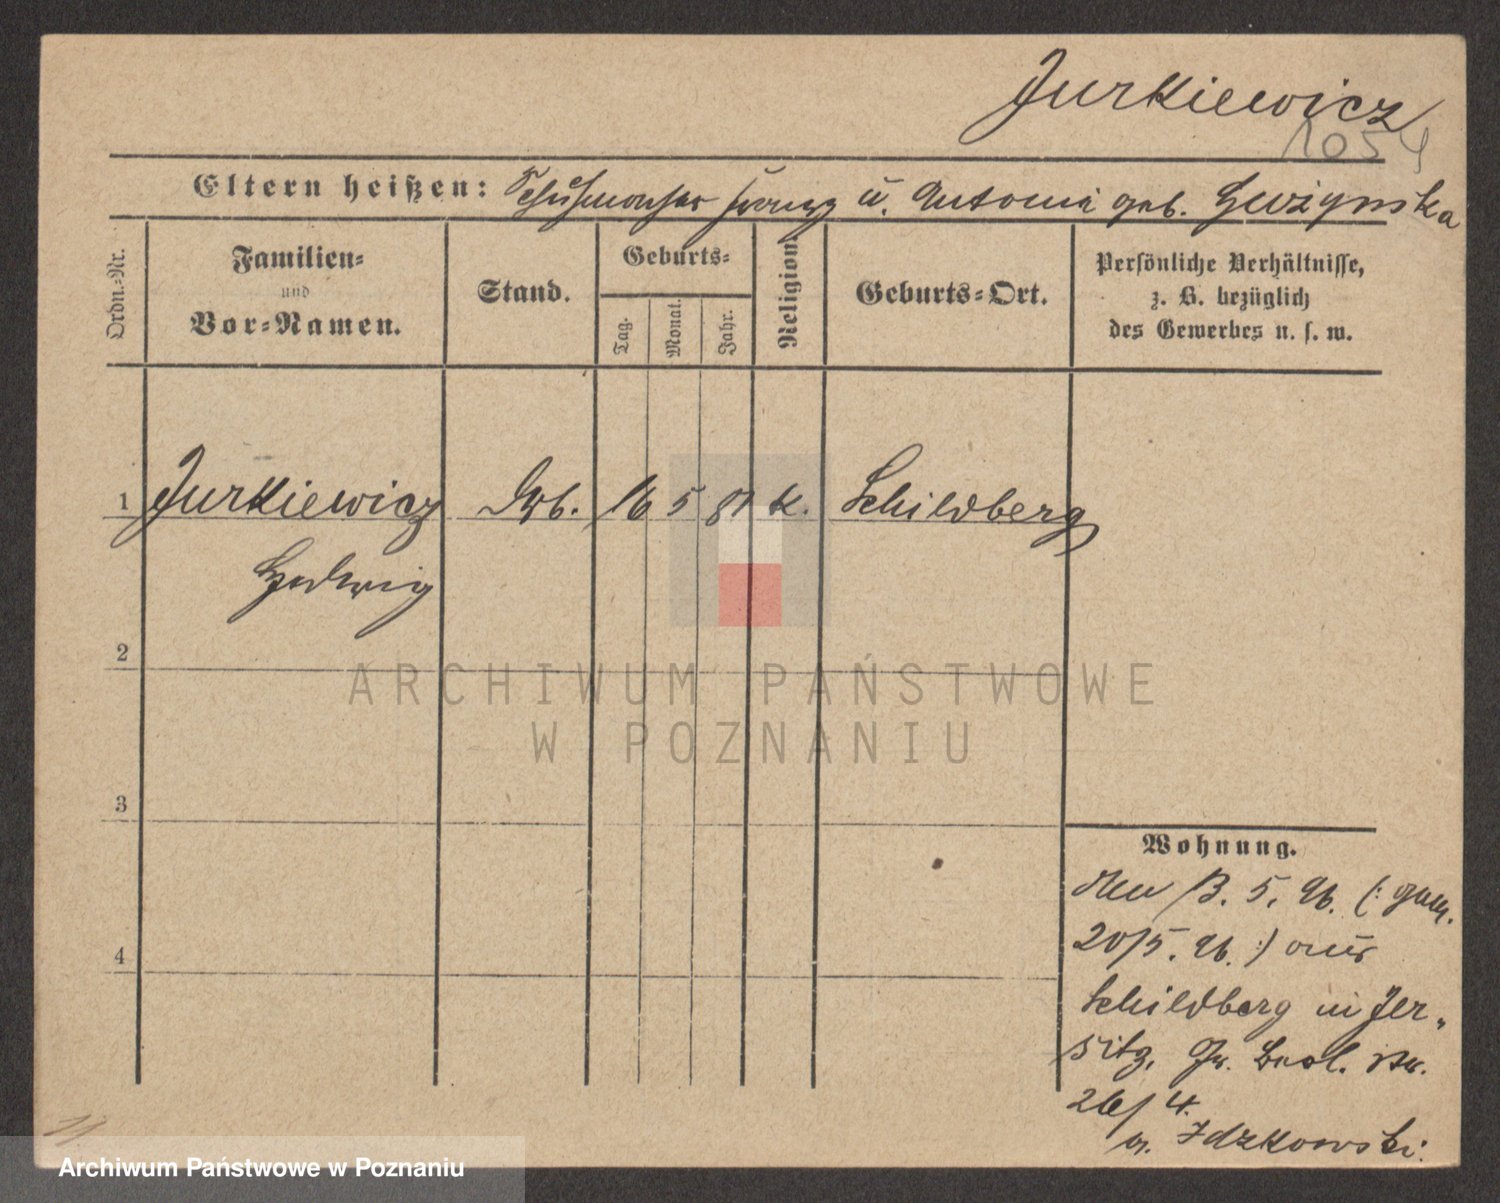 Jurkiewicz
1054
Eltern heißen: Schuhmacher Franz u. Antonie geb.
Ordn.-Nr.
Familien-
und
Vor-Namen.
Stand.
Geburts-
Tag.
Monat.
Jahr.
Religion
Geburts-Ort.
Persönliche Verhältnisse,
z. B. bezüglich
des Gewerbes u. s. w.
1 Jurkiewicz 16 5 81 k. Schildberg
Hedwig
2
3
4
Wohnung.
13. 5. 96. (: gem.
20/5. 96. :) aus
Schildberg in Jer-
sitz, Gr. Berl. Str.
26/4.
Idzkowski.
ARCHIWUM PAŃSTWOWE
W POZNANIU
Archiwum Państwowe w Poznaniu